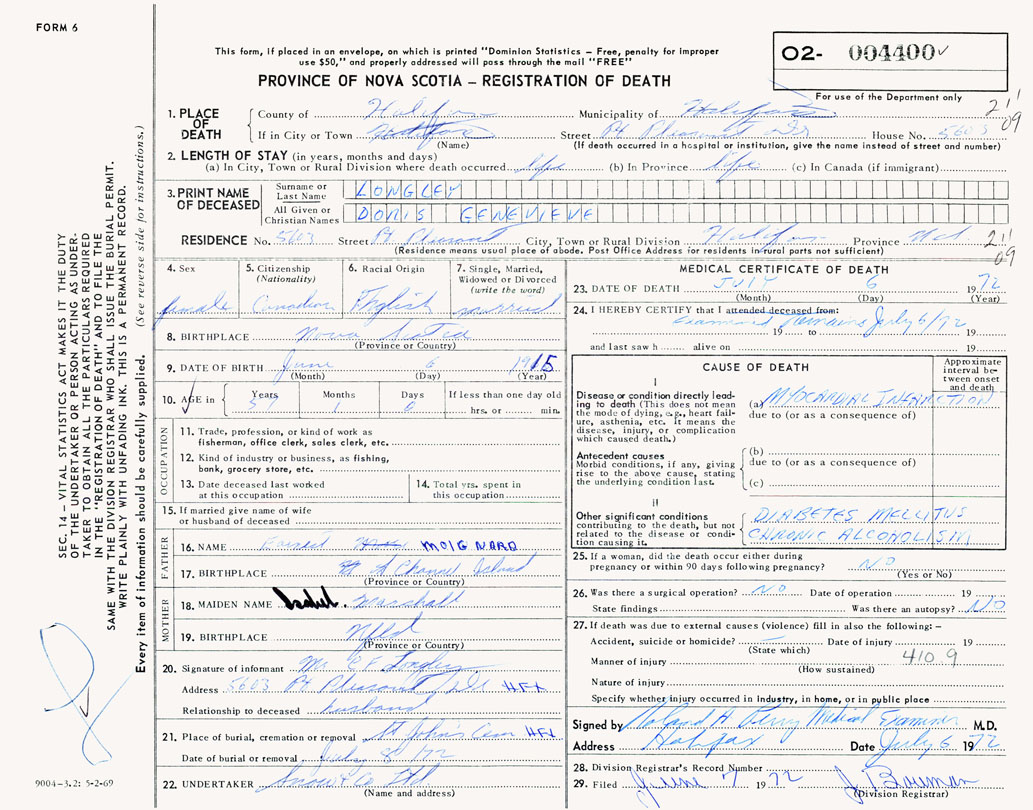 FORM 6
This form, if placed in an envelope, on which is printed "Dominion Statistics – Free, penalty for improper
use $50," and properly addressed will pass through the mail "FREE"
PROVINCE OF NOVA SCOTIA – REGISTRATION OF DEATH
02- 004400
For use of the Department only
211
09
1. PLACE OF DEATH
County of Halifax Municipality of Halifax
If in City or Town Street Pt Pleasant Dr House No. 5603
(Name) (If death occurred in a hospital or institution, give the name instead of street and number)
2. LENGTH OF STAY (in years, months and days)
(a) In City, Town or Rural Division where death occurred life (b) In Province life (c) In Canada (if immigrant)
3. PRINT NAME OF DECEASED
Surname or Last Name LONGLEY
All Given or Christian Names DORIS GENEVIEVE
RESIDENCE No. 5603 Street Pt Pleasant City, Town or Rural Division Halifax Province 211
(Residence means usual place of abode. Post Office Address for residents in rural parts not sufficient) 09
4. Sex female
5. Citizenship (Nationality) Canadian
6. Racial Origin English
7. Single, Married, Widowed or Divorced (write the word) married
8. BIRTHPLACE Nova Scotia
(Province or Country)
9. DATE OF BIRTH June 6 1915
(Month) (Day) (Year)
10. AGE in Years 57 Months 1 Days 6 If less than one day old hrs. or min.
OCCUPATION
11. Trade, profession, or kind of work as
fisherman, office clerk, sales clerk, etc.
12. Kind of industry or business, as fishing,
bank, grocery store, etc.
13. Date deceased last worked
at this occupation
14. Total yrs. spent in
this occupation
15. If married give name of wife
or husband of deceased
FATHER
16. NAME Earnest MOIGNARD
17. BIRTHPLACE Channel Island
(Province or Country)
MOTHER
18. MAIDEN NAME Marshall
19. BIRTHPLACE Nfld
(Province or Country)
20. Signature of informant Mr. C F Longley
Address 5603 Pt Pleasant Dr HFX
Relationship to deceased husband
21. Place of burial, cremation or removal St John's Cem HFX
Date of burial or removal July 8/72
22. UNDERTAKER Snow & Co Ltd
(Name and address)
MEDICAL CERTIFICATE OF DEATH
23. DATE OF DEATH JULY 6 1972
(Month) (Day) (Year)
24. I HEREBY CERTIFY that I attended deceased from:
Examined Remains July 6/72
19 to 19
and last saw h alive on 19
CAUSE OF DEATH
Approximate interval between onset and death
I
Disease or condition directly leading to death (This does not mean the mode of dying, e.g., heart failure, asthenia, etc. It means the disease, injury, or complication which caused death.)
(a) MYOCARDIAL INFARCTION
due to (or as a consequence of)
Antecedent causes
Morbid conditions, if any, giving rise to the above cause, stating the underlying condition last.
(b)
due to (or as a consequence of)
(c)
II
Other significant conditions
contributing to the death, but not related to the disease or condition causing it.
DIABETES MELLITUS
CHRONIC ALCOHOLISM
25. If a woman, did the death occur either during
pregnancy or within 90 days following pregnancy? NO
(Yes or No)
26. Was there a surgical operation? NO Date of operation 19
State findings Was there an autopsy? NO
27. If death was due to external causes (violence) fill in also the following: –
Accident, suicide or homicide? Date of injury 19
(State which)
Manner of injury 410 9
(How sustained)
Nature of injury
Specify whether injury occurred in industry, in home, or in public place
Signed by Roland A. Perry Medical Examiner M.D.
Address Halifax Date July 6 1972
28. Division Registrar's Record Number
29. Filed June 7 1972 J. Bowman
(Division Registrar)
SEC. 14 – VITAL STATISTICS ACT MAKES IT THE DUTY
OF THE UNDERTAKER OR PERSON ACTING AS UNDER-
TAKER TO OBTAIN ALL THE PARTICULARS REQUIRED
IN THE "REGISTRATION OF DEATH" AND TO FILE THE
SAME WITH THE DIVISION REGISTRAR WHO SHALL ISSUE THE BURIAL PERMIT.
WRITE PLAINLY WITH UNFADING INK. THIS IS A PERMANENT RECORD.
Every item of information should be carefully supplied. (See reverse side for instructions.)
9004-3.2: 5-2-69